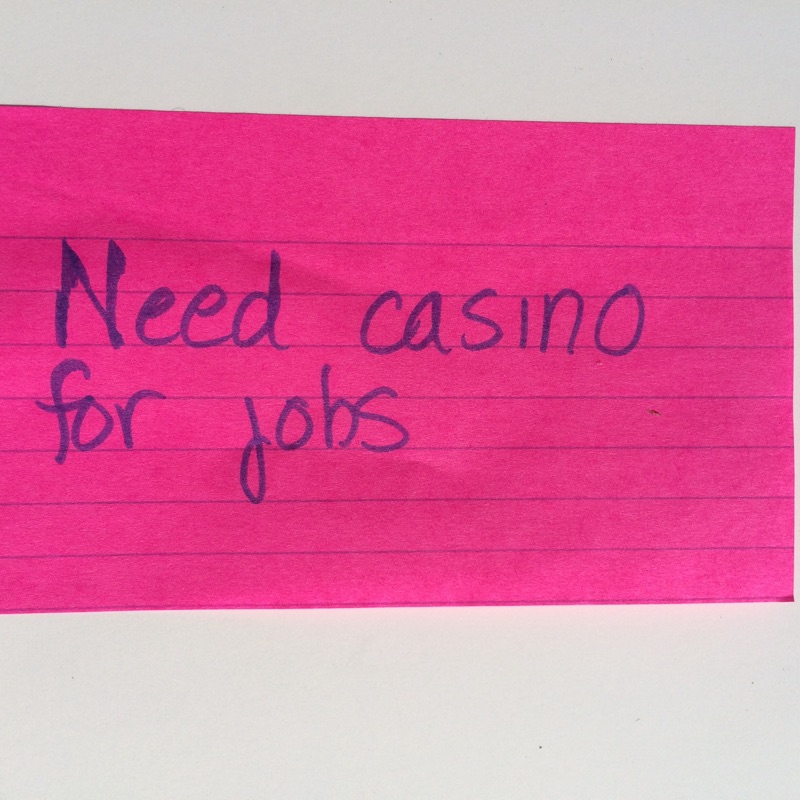 Need casino
for jobs